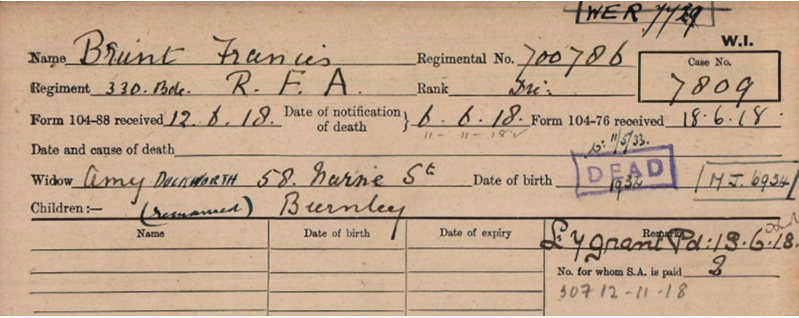 WER 7729
W.I.
Name Brunt Francis Regimental No. 700786 Case No.
Regiment 330. Bde. R. F. A. Rank Dri: 7809
Form 104-88 received 12.6.18. Date of notification of death } 6.6.18. Form 104-76 received 18.6.18.
11 - 11 - 18
Date and cause of death 11/5/33.
Widow Amy DUCKWORTH 58. St Date of birth DEAD 1932 M.J. 6934
Children:— (remarried) Burnley
Name Date of birth Date of expiry Remarks
grant Pd: 13.6.18.
No. for whom S.A. is paid 2
307 12-11-18